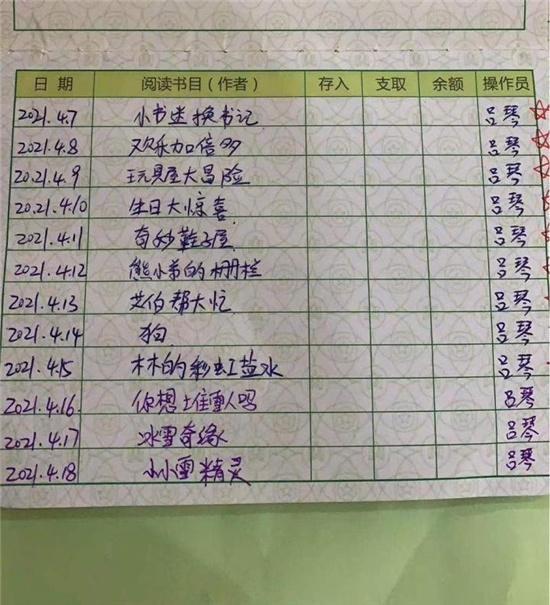 日 期 阅读书目（作者） 存入 支取 余额 操作员
2021.4.7 小书迷换书记 吕琴
2021.4.8 欢乐加倍多 吕琴
2021.4.9 玩具屋大冒险 吕琴
2021.4.10 生日大惊喜 吕琴
2021.4.11 奇妙鞋子屋 吕琴
2021.4.12 熊小弟的栅栏 吕琴
2021.4.13 艾伯帮大忙 吕琴
2021.4.14 狗 吕琴
2021.4.15 木木的彩虹盐水 吕琴
2021.4.16. 你想堆雪人吗 吕琴
2021.4.17 冰雪奇缘 吕琴
2021.4.18 小小雪精灵 吕琴